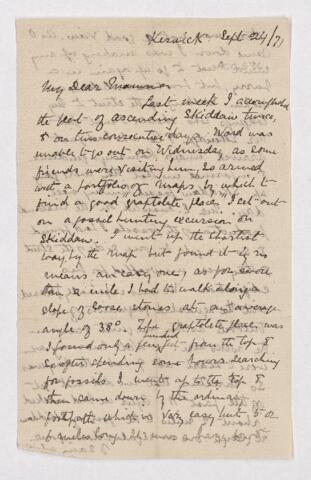 Keswick Sept 24/71
My Dear Mamma
Last week I accomplished
the feat of ascending Skiddaw twice,
& on two consecutive days. Ward was
unable to go out on Wednesday as some
friends were visiting him, so armed
with a portfolio of maps by which to
find a good graptolite place I set out
on a fossil hunting excursion on
Skiddaw. I went up the shortest
way by the map but found it by no
means an easy one, as for more
than a mile I had to walk along a
slope of loose stones at an average
angle of 38°. The graptolite place was
I found only a few hundred feet from the top &
so after spending some hours searching
for fossils I went up to the top &
then came down by the ordinary
footpath which is very easy but 5 or
6 miles long